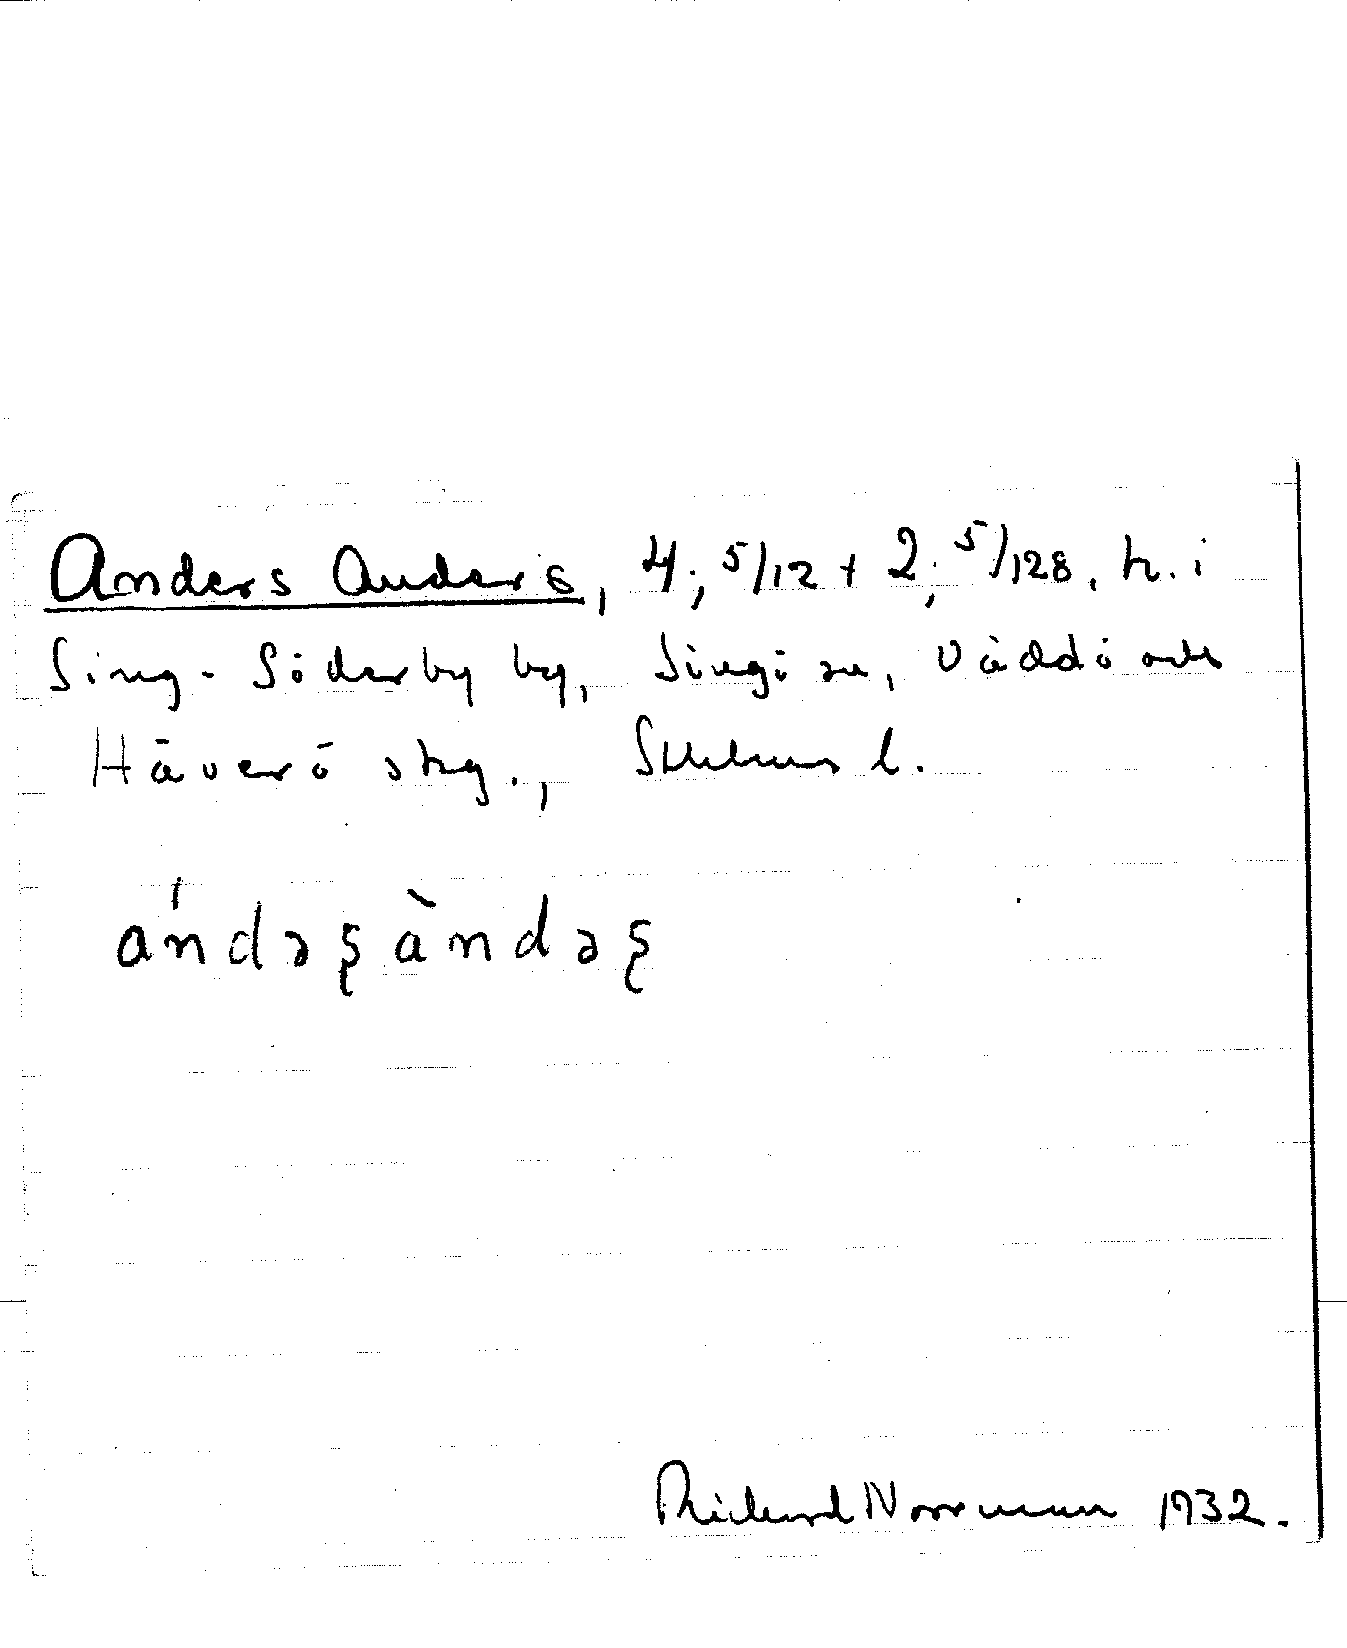 Anders Anders, 4; 5/12 + 2; 5/128, h. i
Sing-Söderby by, Singö sn, Väddö och
Häverö skg., Sthlms l.
an̍dəʂàndəʂ
Richard Norrman 1932.